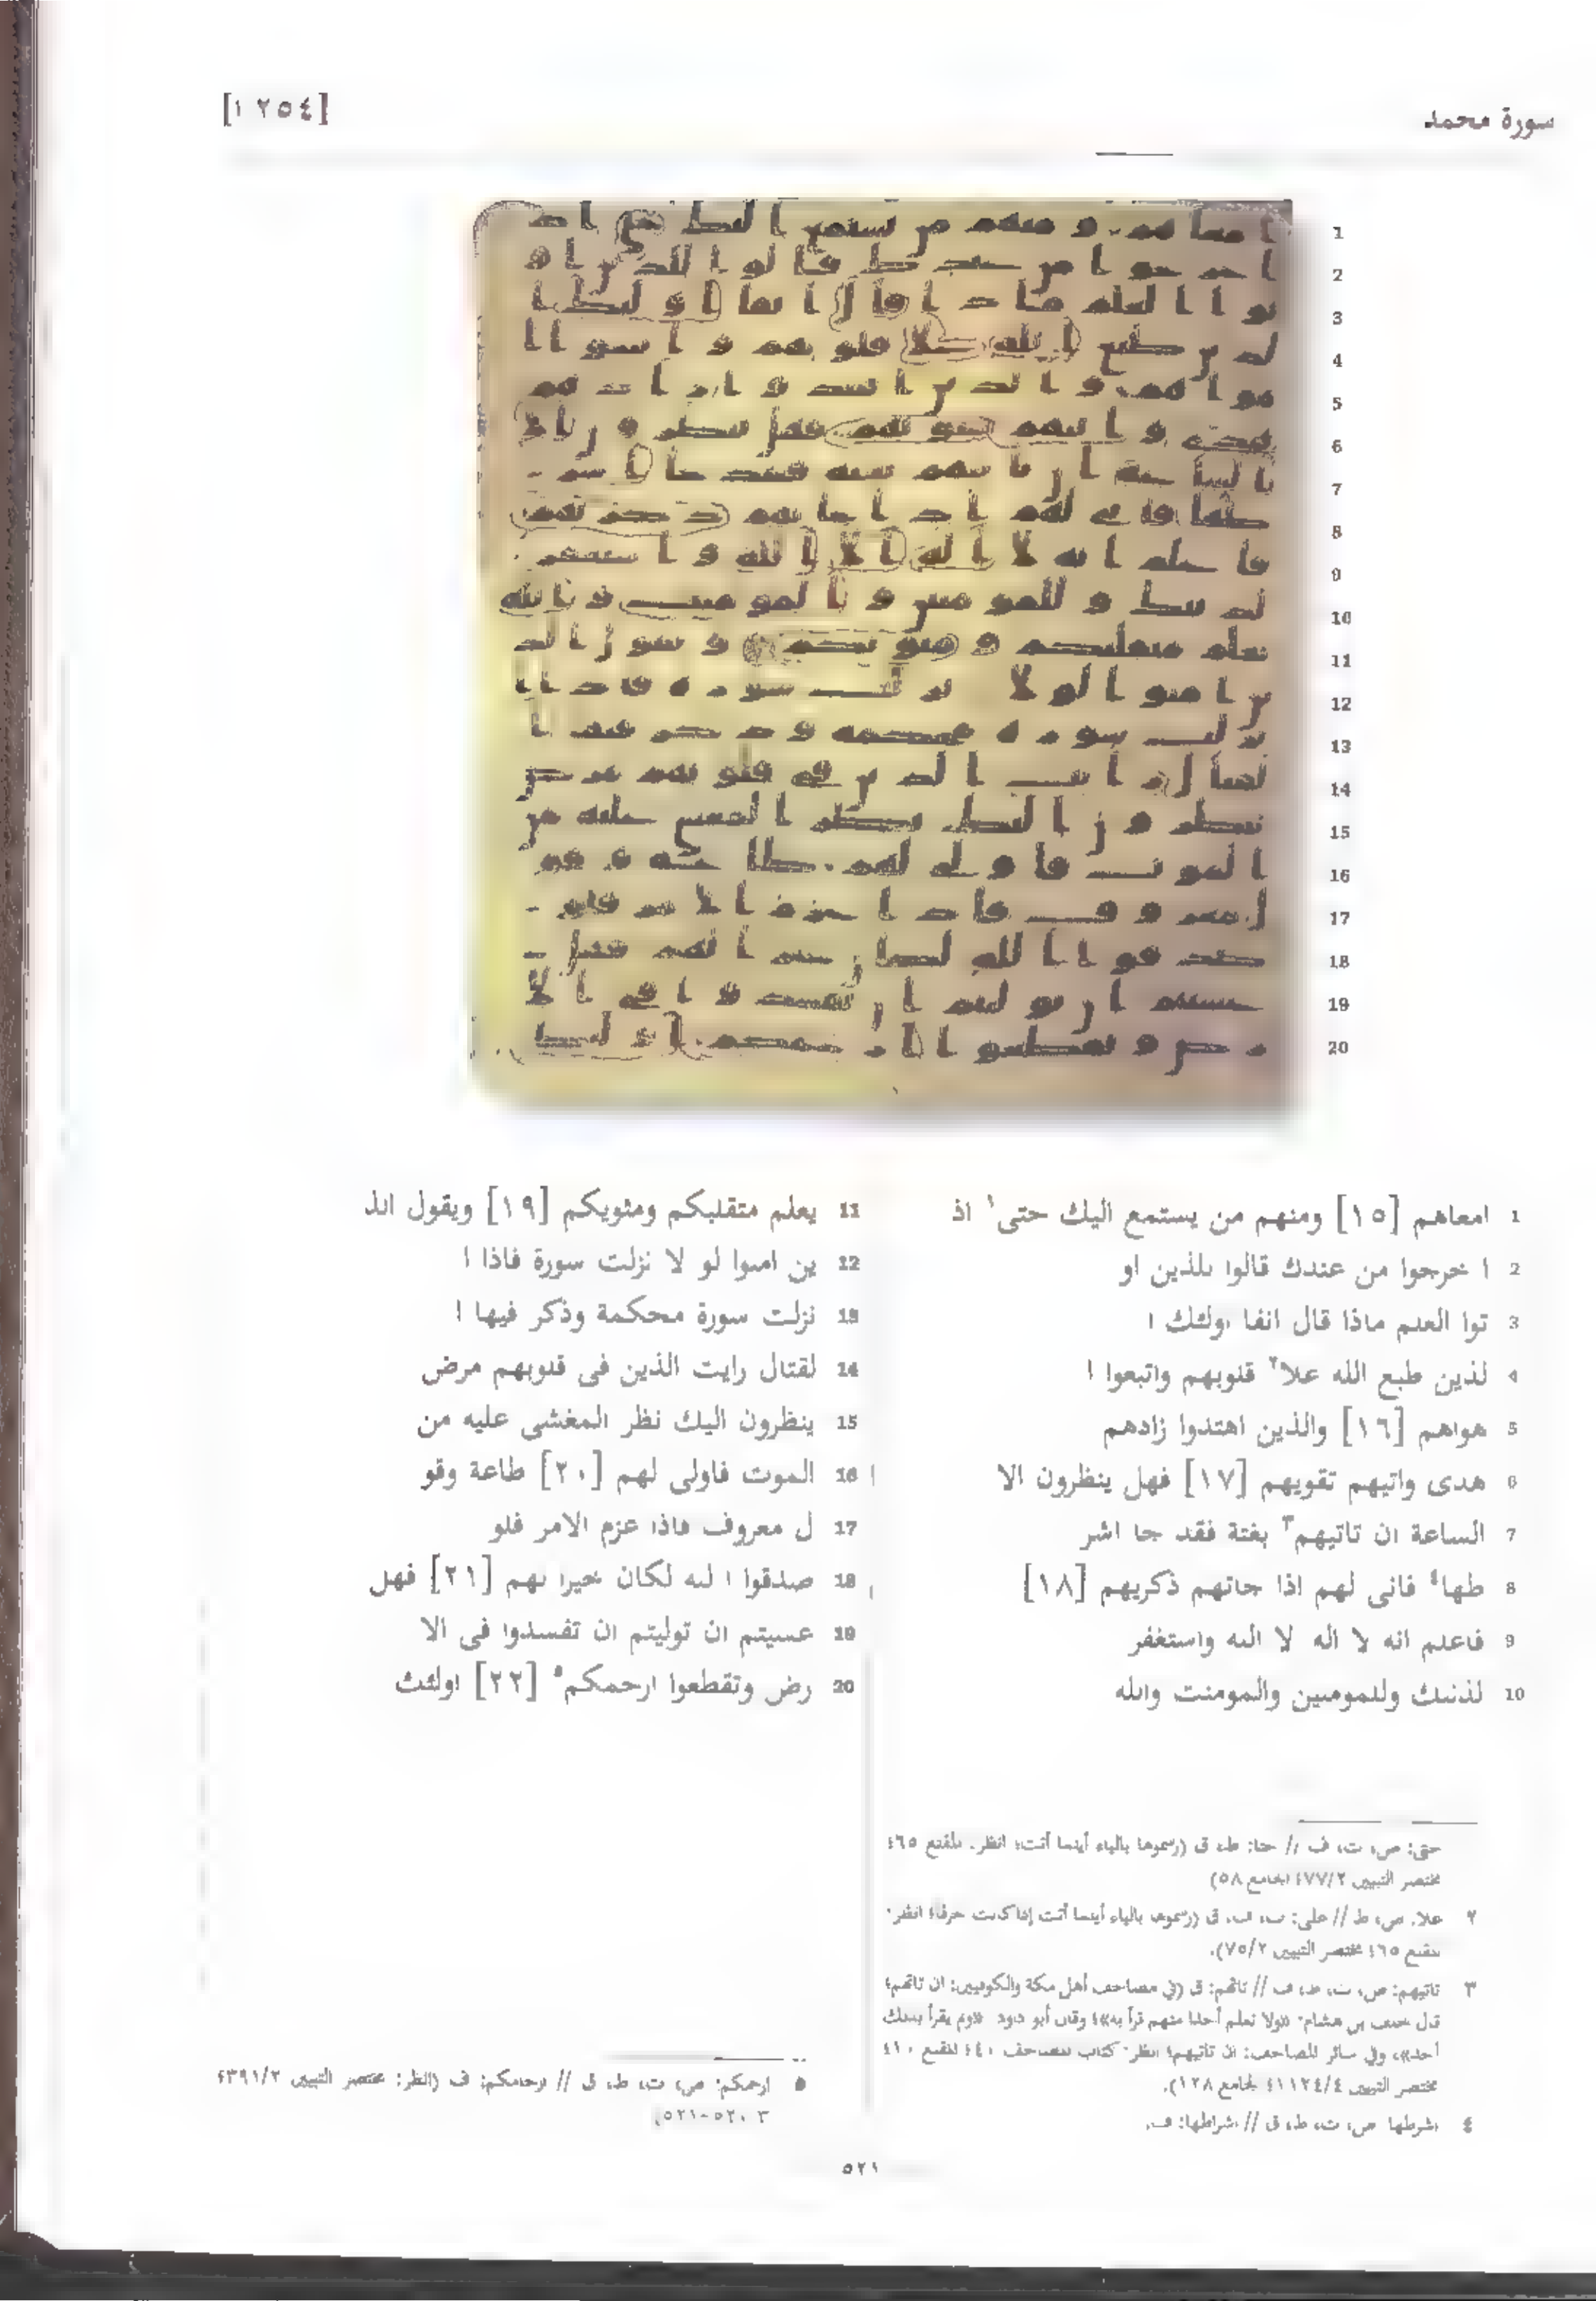 سورة محمد
[٢٥٤ ا]
1 امعاهم [١٥] ومنهم من يستمع اليك حتى١ اذ
2 ا خرجوا من عندك قالوا للذين او
3 توا العلم ماذا قال انفا اولئك ا
4 لذين طبع الله علا٢ قلوبهم واتبعوا ا
5 هواهم [١٦] والذين اهتدوا زادهم
6 هدى واتيهم تقويهم [١٧] فهل ينظرون الا
7 الساعة ان تاتيهم٣ بغتة فقد جا اشر
8 طها٤ فانى لهم اذا جاتهم ذكريهم [١٨]
9 فاعلم انه لا اله لا الله واستغفر
10 لذنبك وللمومنين والمومنت والله
11 يعلم متقلبكم ومثويكم [١٩] ويقول الذ
12 ين امنوا لو لا نزلت سورة فاذا ا
13 نزلت سورة محكمة وذكر فيها ا
14 لقتال رايت الذين فى قلوبهم مرض
15 ينظرون اليك نظر المغشى عليه من
16 الموت فاولى لهم [٢٠] طاعة وقو
17 ل معروف فاذا عزم الامر فلو
18 صدقوا ا لله لكان خيرا لهم [٢١] فهل
19 عسيتم ان توليتم ان تفسدوا فى الا
20 رض وتقطعوا ارحمكم٥ [٢٢] اولئك
حتى: ص، ت، ف // حتا: ط، ق (رسموها بالياء أينما أتت؛ انظر: المقنع ٤٦٥
مختصر التبيين ٧٧/٢؛ الجامع ٥٨)
٢ علا: ص، ط // على: ت، ف، ق (رسموها بالياء أينما أتت إذا كانت حرفا؛ انظر:
المقنع ٤٦٥ مختصر التبيين ٧٥/٢).
٣ تاتيهم: ص، ت، ط، ف // تاتهم: ق (في مصاحف أهل مكة والكوفيين: ان تاتهم؛
قال خلف بن هشام: «ولا نعلم أحدا منهم قرأ به»؛ وقال أبو داود: «ولم يقرأ بذلك
أحد»، وفي سائر المصاحف: ان تاتيهم؛ انظر: كتاب المصاحف ٤٤٠ المقنع ٤١٠
مختصر التبيين ١١٢٤/٤؛ الجامع ١٢٨).
٤ اشرطها: ص، ت، ط، ق // اشراطها: ف.
٥ ارحمكم: ص، ت، ط، ق // ارحامكم: ف (انظر: مختصر التبيين ٣٩١/٢؛
٣ ٥٢٠-٥٢١)
٥٢١